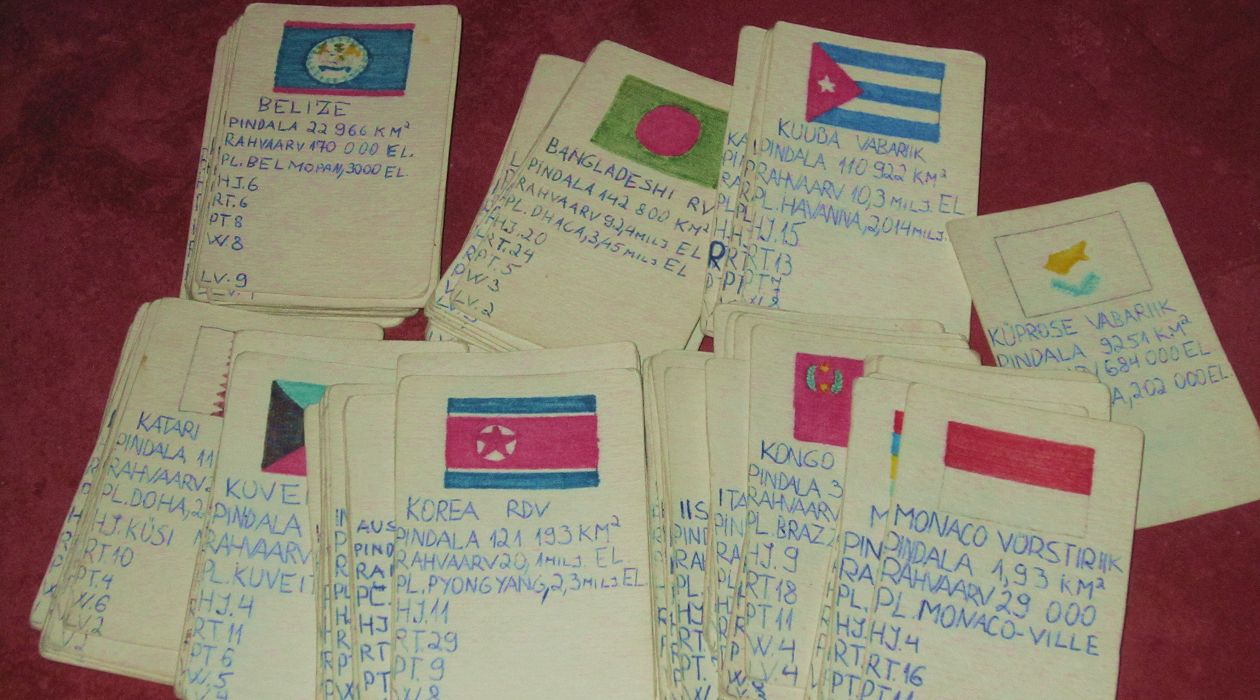 BELIZE
PINDALA 22 966 KM²
RAHVAARV 170 000 EL.
PL. BELMOPAN, 3000 EL.
HJ.6
RT.6
PT8
W8
LV.9
BANGLADESHI RV
PINDALA 142 800 KM²
RAHVAARV 92,4 MILJ EL
PL. DHACA, 3,45 MILJ EL
HJ.20
RT.24
PT.5
W3
LV.2
KUUBA VABARIIK
PINDALA 110 922 KM²
RAHVAARV 10,3 MILJ. EL
PL. HAVANNA, 2,014 MILJ.
HJ.15
RT13
PT7
KÜPROSE VABARIIK
PINDALA 9251 KM²
684 000 EL
A, 202 000 EL
KATARI
PINDALA 11
RAHVAARV
PL. DOHA, 2
HJ. KÜSI
RT10
PT.4
W.6
LV.2
KUVE
PINDALA
RAHVAARV
PL. KUVEIT
HJ.4
RT11
PT6
W.5
AUS
PIND
KOREA RDV
PINDALA 121 193 KM²
RAHVAARV 20,1 MILJ. EL
PL. PYONGYANG, 2,3 MILJ EL
HJ.11
RT29
PT.9
W8
IIS
ITA
KONGO
PINDALA 3
RAHVAARV
PL. BRAZZ
HJ.9
RT18
PT11
W.4
LV.4
MONACO VÜRSTIRIIK
PINDALA 1,93 KM²
RAHVAARV 29 000
PL. MONACO-VILLE
HJ.4
RT.16
PT11